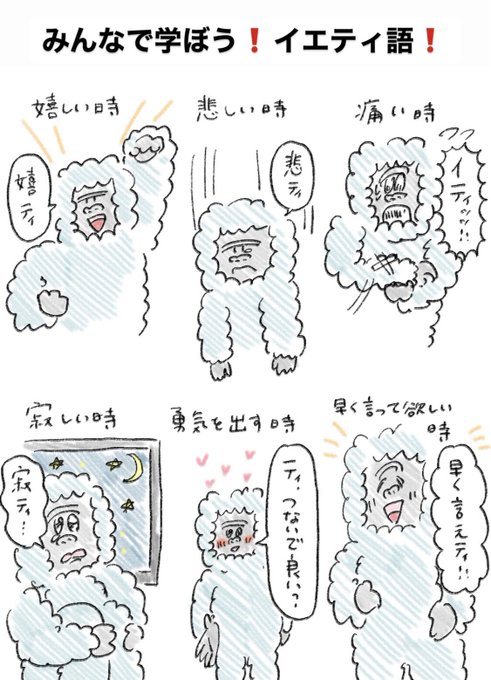 みんなで学ぼう❗イエティ語❗
嬉しい時
嬉ティ
悲しい時
悲ティ
痛い時
イティッ!!
寂しい時
寂ティ…
勇気を出す時
ティ、つないで良い?
早く言って欲しい
時
早く言えティ!!